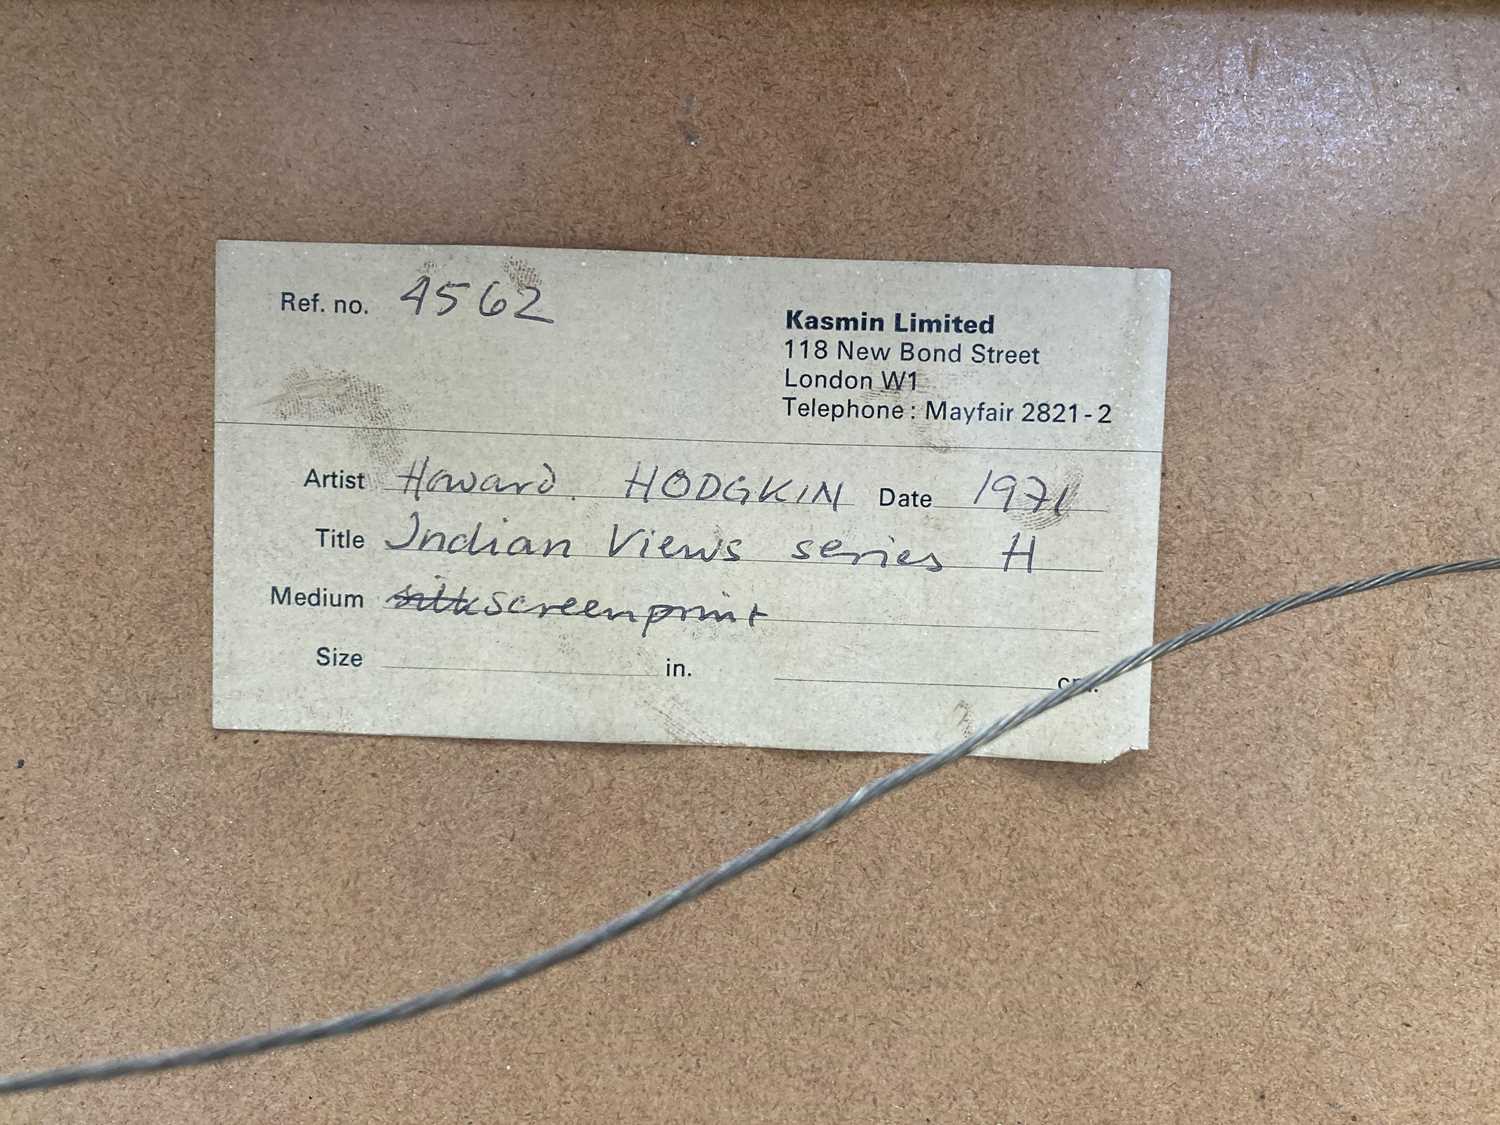 Ref. no. 4562
Kasmin Limited
118 New Bond Street
London W1
Telephone: Mayfair 2821-2
Artist Howard. HODGKIN Date 1971
Title Indian Views series H
Medium silkscreenprint
Size in. cm.